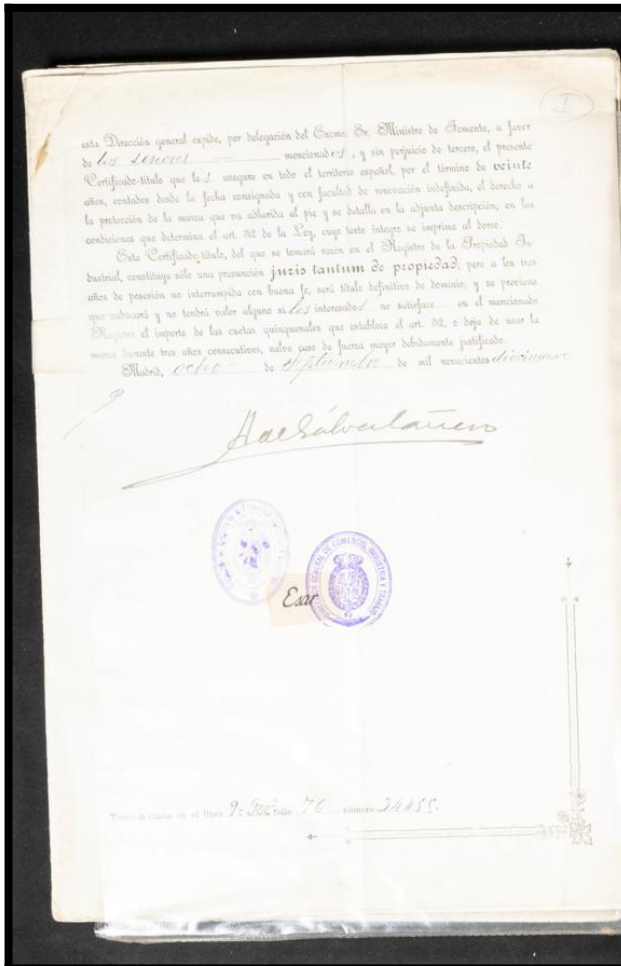 I
esta Dirección general expide, por delegación del Excmo. Sr. Ministro de Fomento, a favor
de los señores mencionados, y sin perjuicio de tercero, el presente
Certificado-título que les asegura en todo el territorio español, por el término de veinte
años, contados desde la fecha consignada y con facultad de renovación indefinida, el derecho a
la protección de la marca que va adherida al pie y se detalla en la adjunta descripción, en las
condiciones que determina el art. 32 de la Ley, cuyo texto íntegro se imprime al dorso.
Este Certificado-título, del que se tomará razón en el Registro de la Propiedad In-
dustrial, constituye sólo una presunción juris tantum de propiedad; pero a los tres
años de posesión no interrumpida con buena fe, será título definitivo de dominio, y se previene
que caducará y no tendrá valor alguno si los interesados no satisface en el mencionado
Registro el importe de las cuotas quinquenales que establece el art. 32, o deja de usar la
marca durante tres años consecutivos, salvo caso de fuerza mayor debidamente justificado.
Madrid, ocho de septiembre de mil novecientos
DIRECCIÓN GENERAL DE COMERCIO, INDUSTRIA Y TRABAJO
Esar
Tomada razón en el libro 9º folio 76 número 34455.